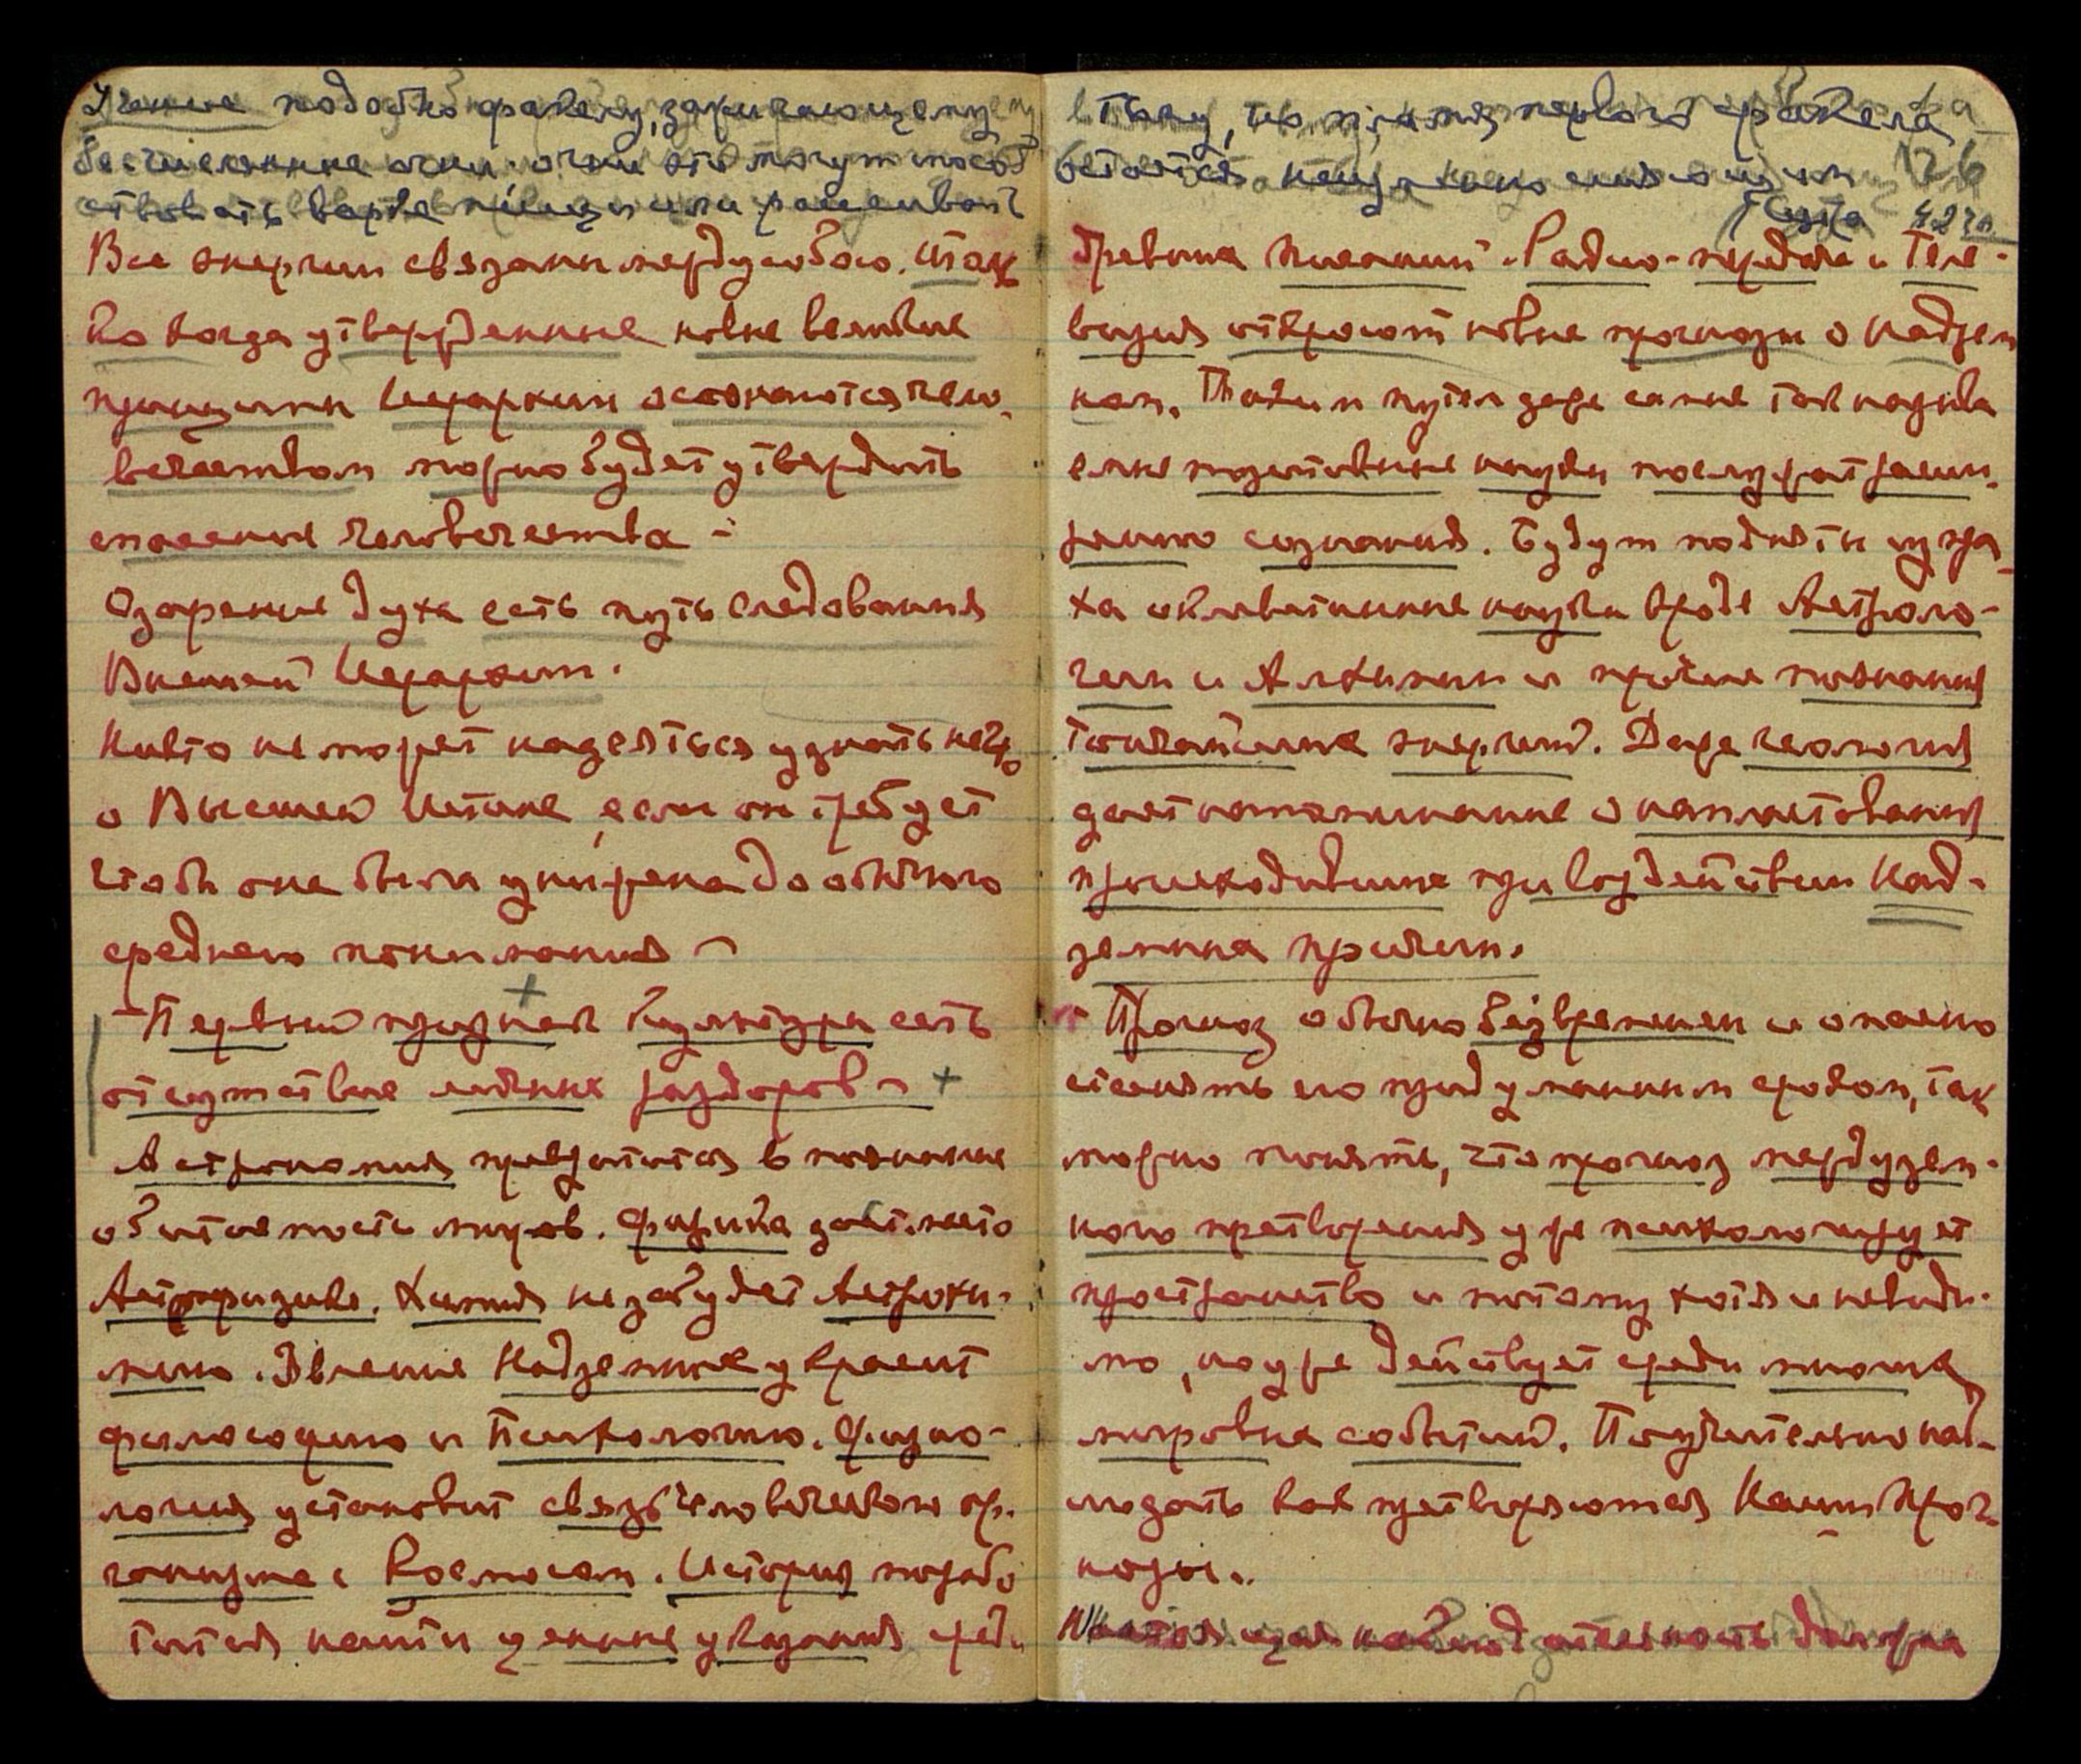 Учение подобно факелу, зажигающему
бесчисленные огни. Огни эти могут
Все энергии связаны между собою.
ко когда утвержденные новые великие
принципы Иерархии осознаются чело-
вечеством можно будет утвердить
спасение человечества –
Озарение духа есть путь следования
Высшей Иерархии.
Никто не может надеяться узнать нечто
о Высшей Истине, если он требует
чтобы она была унижена до обычного
среднего понимания ~
– Первый признак Культуры есть
отсутствие личных раздоров ~ +
Астрономия превратится в познание
обитаемости миров. Физика даст место
Астрофизике. Химия не забудет Астрохи-
мию. Явление Надземное украсит
философию и Психологию. Физио-
логия установит связь человеческого ор-
ганизма с Космосом. История позабо
тится найти ценные указания среди
пламя первого факела
126
427 л.
древних Писаний. Радио-передача и Теле-
визия откроют новые прогнозы о Надзем
ном. Таким путем даже самые так называ
емые позитивные науки послужат расши-
рению сознания. Будут подняты из пра-
ха оклеветанные науки вроде Астроло-
гии и Алхимии и прочие познания
тончайших энергий. Даже геология
дает напоминание о напластованиях
происходивших при воздействии Над-
земных причин.
Прогноз обычно безвременен и опасно
стеснять его придуманным сроком, так
можно понять, что прогноз междузем-
ного претворения уже психологизирует
пространство и потому хотя и невиди-
мо, но уже действует среди многих
мировых событий. Поучительно наб-
людать как претворяются Наши Прог-
нозы..
наблюдательность должна